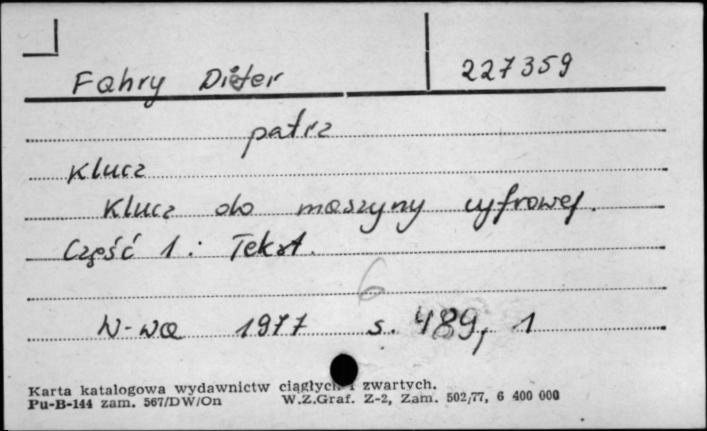 Fahry Dieter 227359
patrz
Klucz
Klucz do maszyny cyfrowej.
Część 1: Tekst.
6
W-wa 1977 s. 489, 1
Karta katalogowa wydawnictw ciągłych i zwartych.
Pu-B-144 zam. 567/DW/On W.Z.Graf. Z-2, Zam. 502/77, 6 400 000